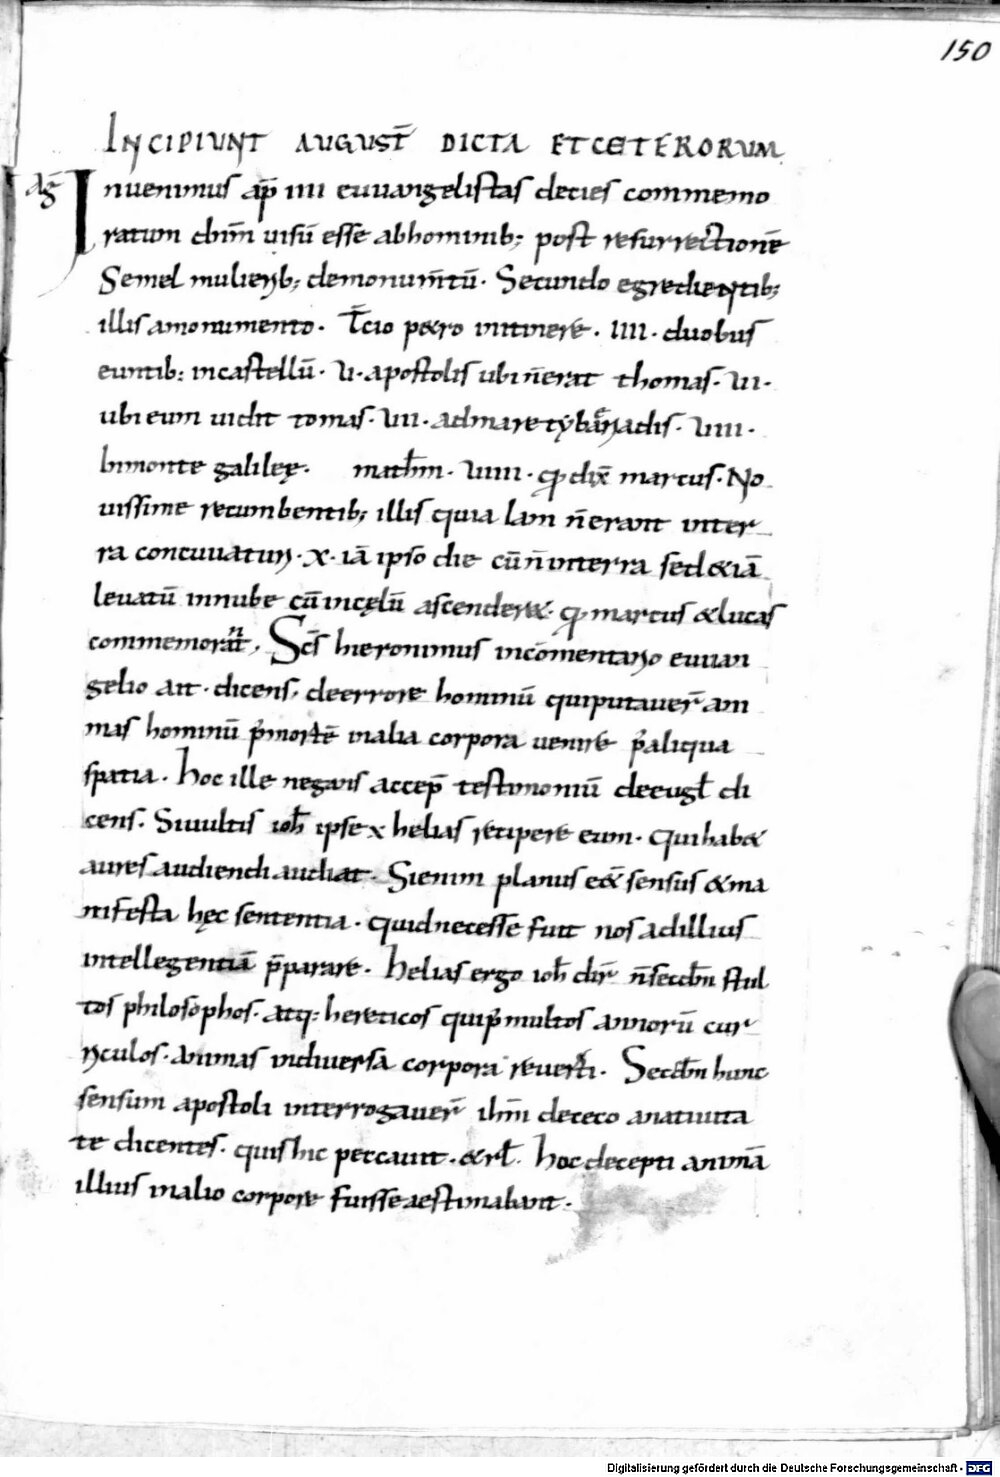 150
INCIPIUNT AUGUST̄ DICTA ET CETERORUM
aḡ
Inuenimus ap̄ IIII euuangelistas decies commemo
ratum dn̄m uisū esse ab hominib; post resurrectionē
Semel mulierib; de monum̄tū. Secundo egredientib;
illis a monumento. T̄cio petro in itinere. IIII. duobus
euntib: in castellū. V. apostolis ubi ñ erat thomas. VI.
ubi eum uidit tomas. VII. ad mare tyberiadis. VIII.
In monte galileę. math̄m. VIIII. qđ dix̄ marcus. No
uissime recumbentib; illis quia iam ñ erant in ter
ra conuiuaturi. X. iā ipso die cū ñ in terra sed &iā
leuatū in nube cū in cęlū ascender&. qđ marcus & lucas
commemorant. Sc̄s hieronimus in cōmentario euuan
gelio ait. dicens, de errore hominū qui putauer̄ ani
mas hominū p̄ mortē in alia corpora uenire p̄ aliqua
spatia. hoc ille negans accep̄ testimoniū de eugł di
cens. Si uultis ioh̄ ipse x helias recipere eum. Qui hab&
aures audiendi audiat. Si enim planus eēt sensus & ma
nifesta hęc sententia. quid necesse fuit nos ad illius
intellegentiā p̄parare. helias ergo ioh̄ dir̄ ñ secdm̄ stul
tos philosophos. atq: hereticos qui p̄ multos annorū cur
riculos. animas in diuersa corpora reuerti. Secdm̄ hunc
sensum apostoli interrogauer̄ ih̄m de ceco a natiuita
te dicentes. quis hic peccauit. & rł. hoc decepti animā
illius in alio corpore fuisse aestimabant.
Digitalisierung gefördert durch die Deutsche Forschungsgemeinschaft - DFG